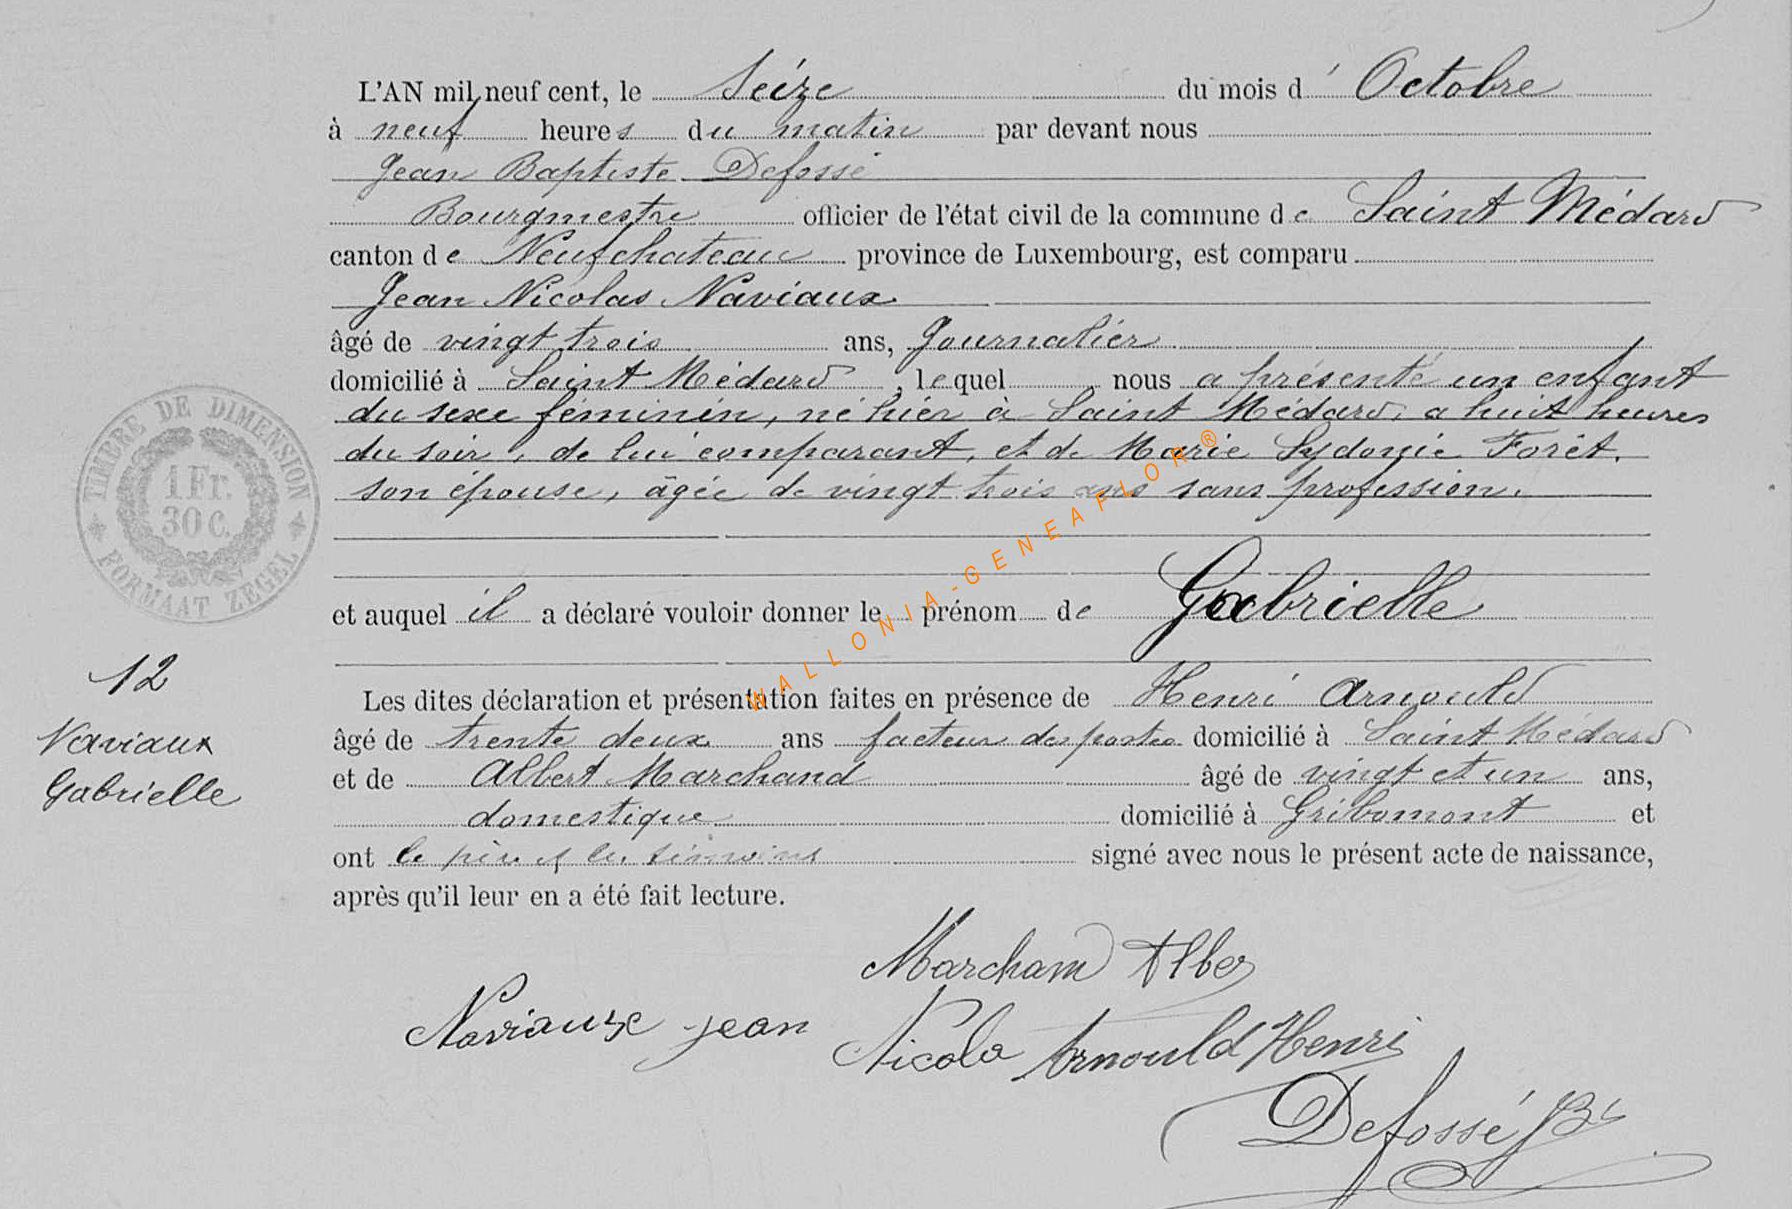 L'AN mil neuf cent, le Seize du mois d' Octobre
à neuf heures du matin par devant nous
Jean Baptiste Defossé
Bourgmestre officier de l'état civil de la commune de Saint Médard
canton de Neufchateau province de Luxembourg, est comparu
Jean Nicolas Naviaux
âgé de vingt trois ans, Journalier
domicilié à Saint Médard, lequel nous a présenté un enfant
du sexe féminin, né hier à Saint Médard, a huit heures
du soir, de lui comparant, et de Marie Sydonie Forêt,
son épouse, âgée de vingt trois ans sans profession.
et auquel il a déclaré vouloir donner le prénom de Gabrielle
Les dites déclaration et présentation faites en présence de Henri Arnould
âgé de trente deux ans facteur des postes domicilié à Saint Médard
et de Albert Marchand âgé de vingt et un ans,
domestique domicilié à Gribomont et
ont le père et les témoins signé avec nous le présent acte de naissance,
après qu'il leur en a été fait lecture.
TIMBRE DE DIMENSION
1 Fr.
30 C.
FORMAAT ZEGEL
12
Naviaux
Gabrielle
WALLONIA-GENEAFLOR®
Marchand Alber
Naviaux jean Nicola Arnould Henri
Defossé JBt